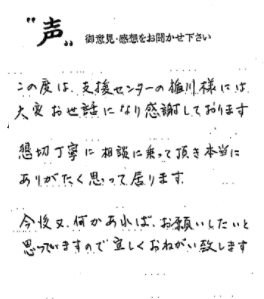 "声" 御意見・感想をお聞かせ下さい
この度は、支援センターの雄川様には
大変お世話になり感謝しております
懇切丁寧に相談に乗って頂き本当に
ありがたく思って居ります
今後又、何かあれば、お願いしたいと
思っていますので宜しくおねがい致します